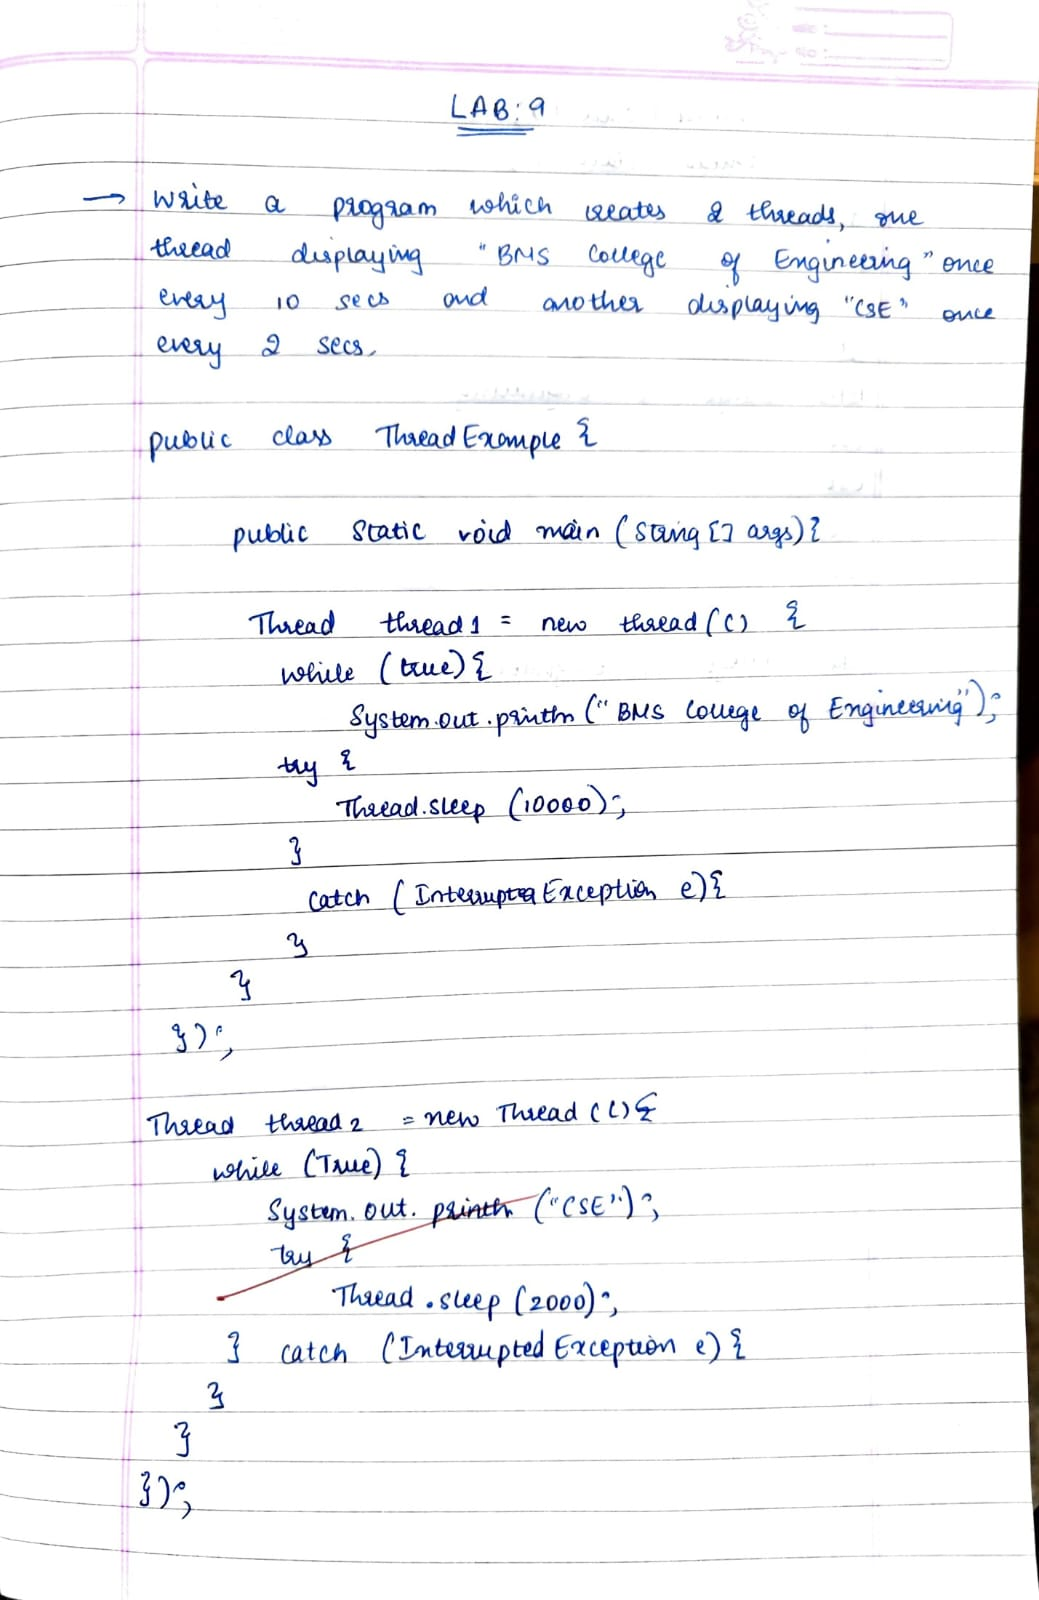 LAB: 9
→ Write a program which creates 2 threads, one
thread displaying "BMS College of Engineering" once
every 10 secs and another displaying "CSE" once
every 2 secs.
public class ThreadExample {
public static void main (String [] args) {
Thread thread1 = new thread (() {
while (true) {
System.out.println ("BMS College of Engineering");
try {
Thread.sleep (10000);
}
catch ( Exception e) {
}
}
});
Thread thread2 = new Thread (() {
while (True) {
System.out. println ("CSE");
try {
Thread.sleep (2000);
} catch (Interrupted Exception e) {
}
}
});